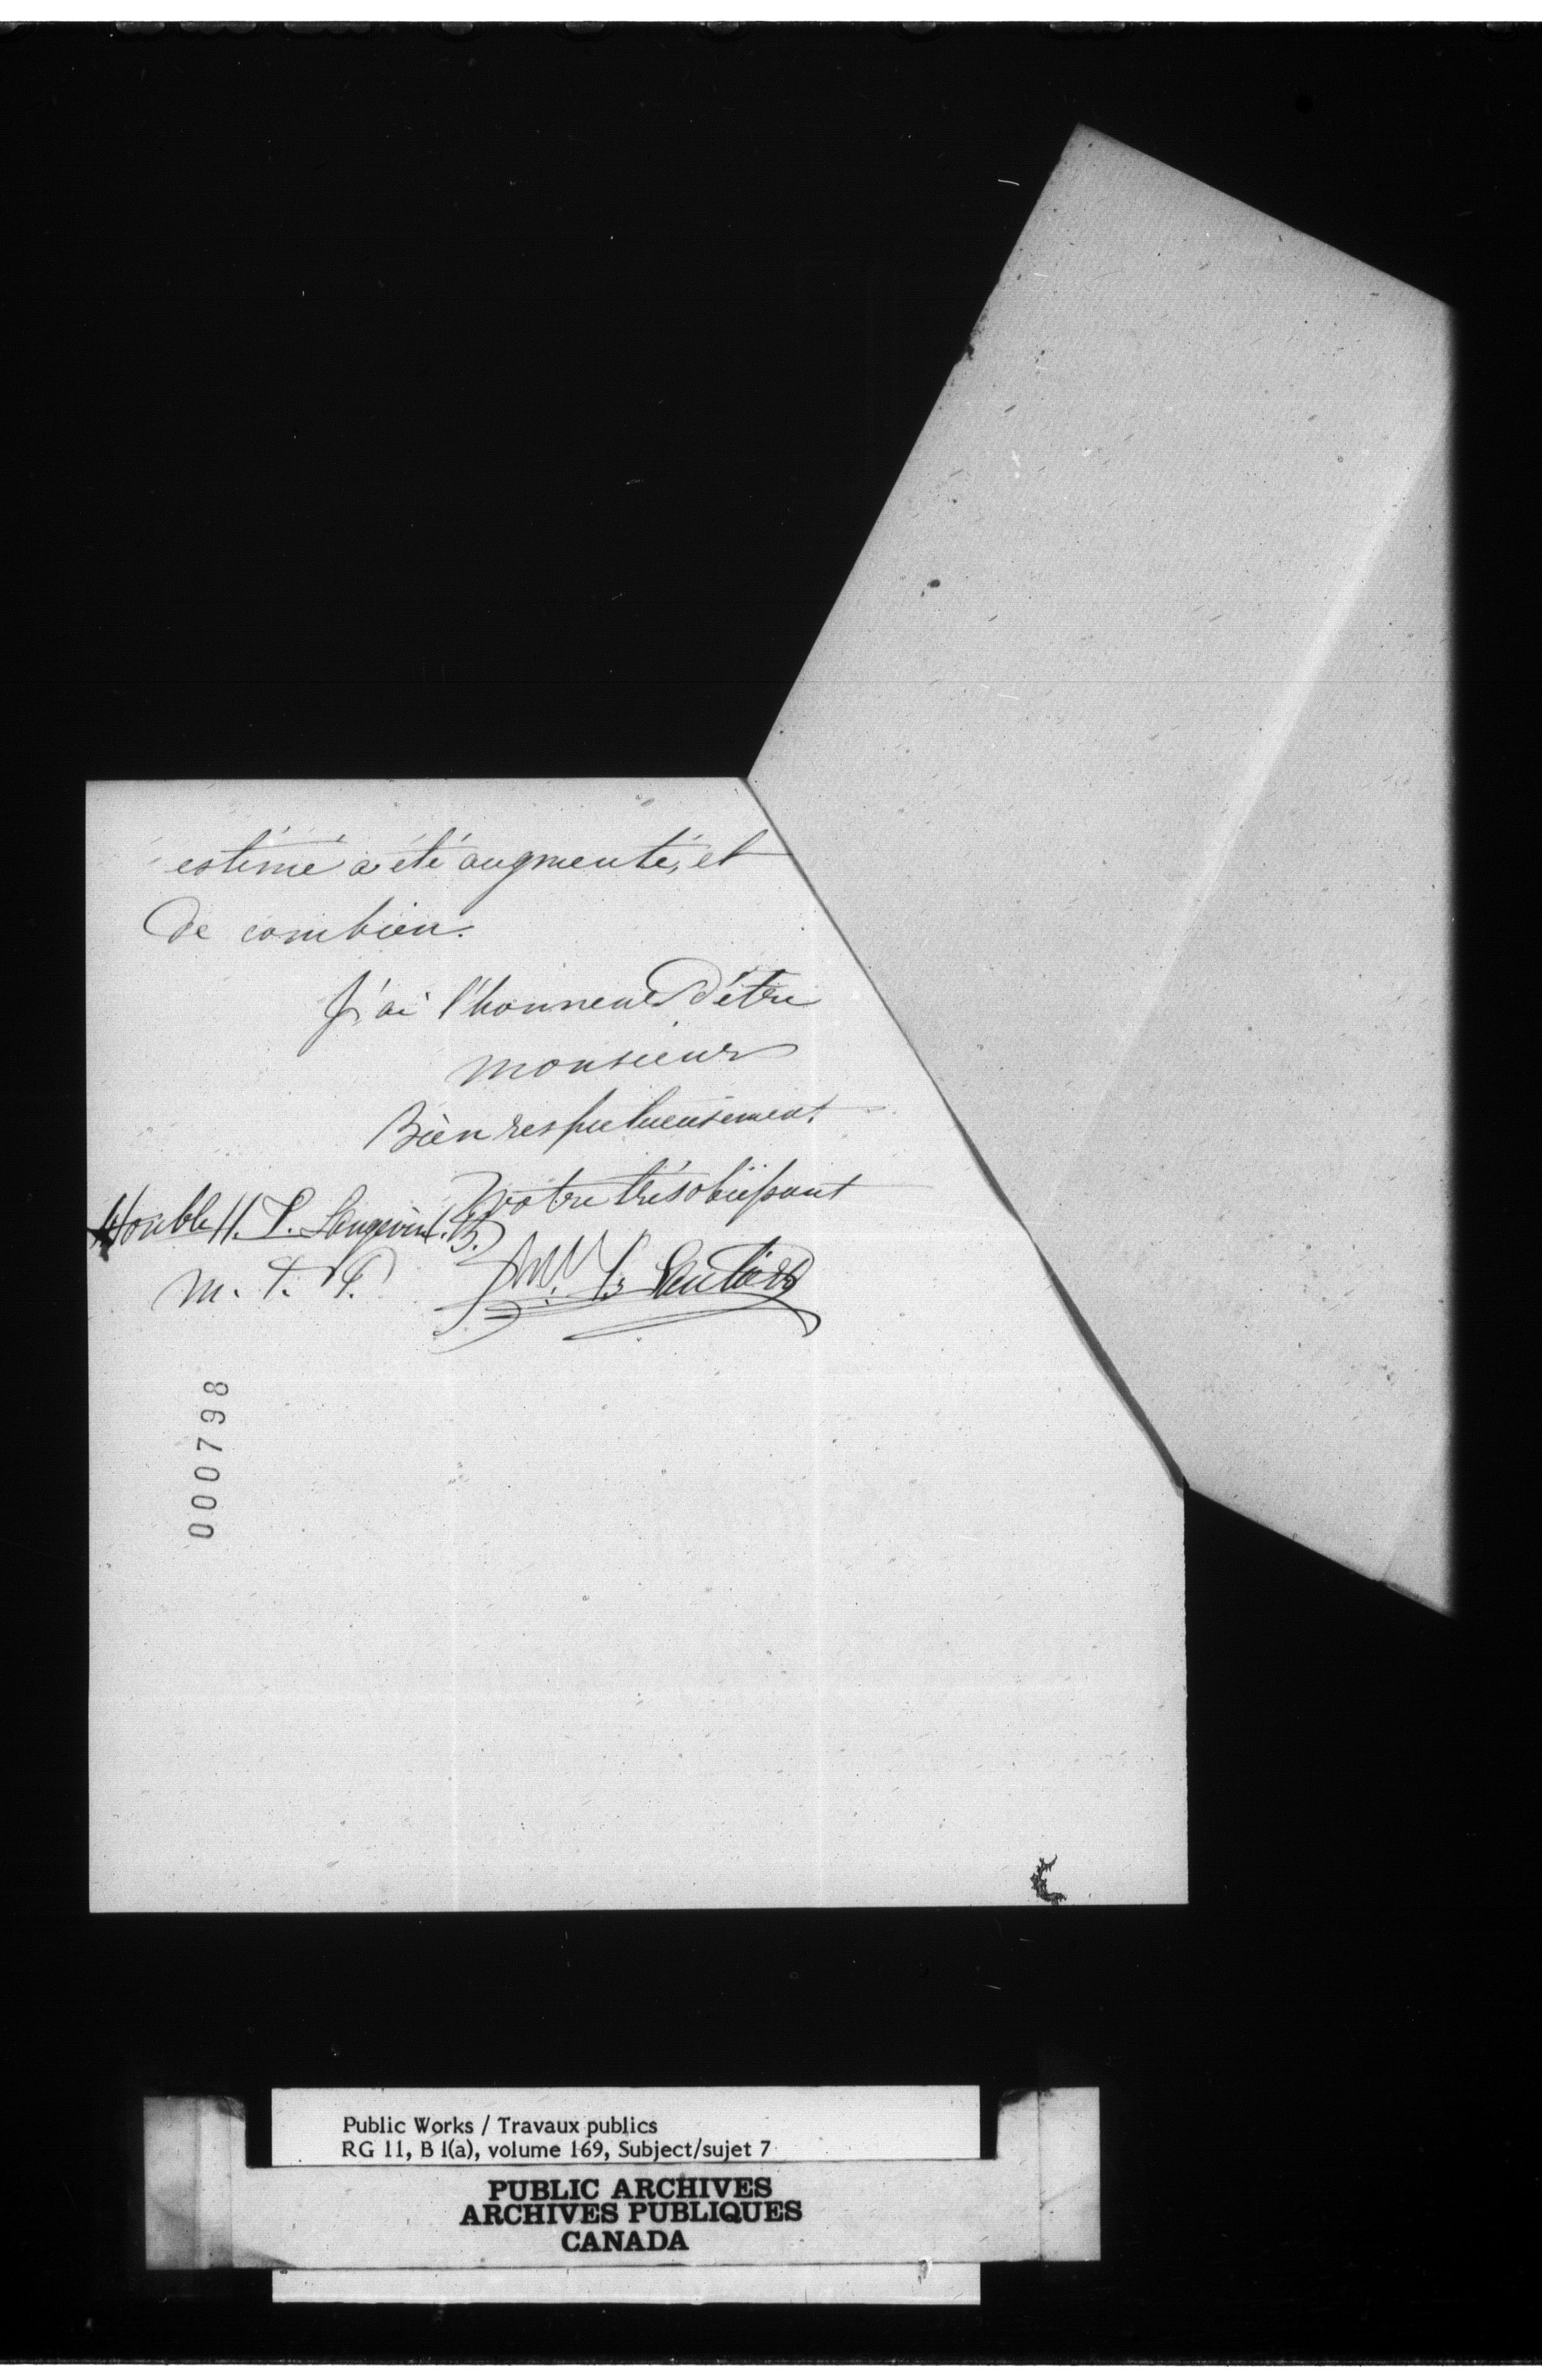 estimé a été augmenté, et
de combien.
J'ai l'honneur d'être
Monsieur
Bien respectueusement
Votre très obéissant
Honble H. L. Langevin C.B.
M. T. P.
000798
Public Works / Travaux publics
RG 11, B 1(a), volume 169, Subject/sujet 7
PUBLIC ARCHIVES
ARCHIVES PUBLIQUES
CANADA